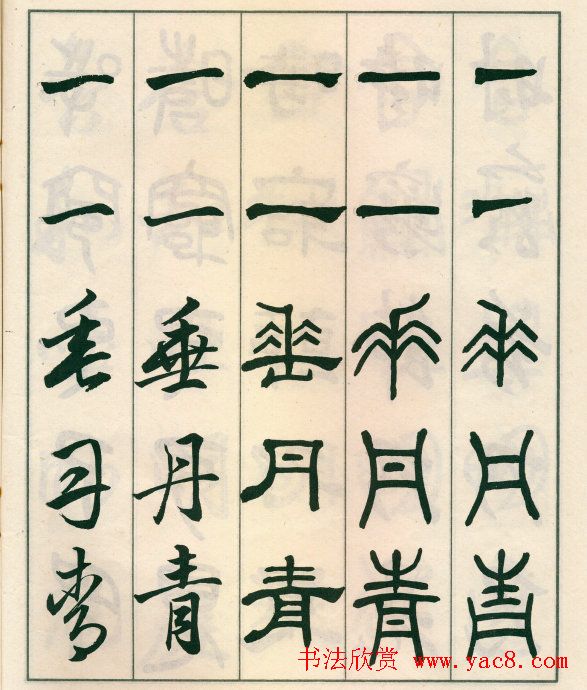 一一垂丹青
一一垂丹青
一一垂丹青
一一垂丹青
一一垂丹青
书法欣赏 www.yac8.com